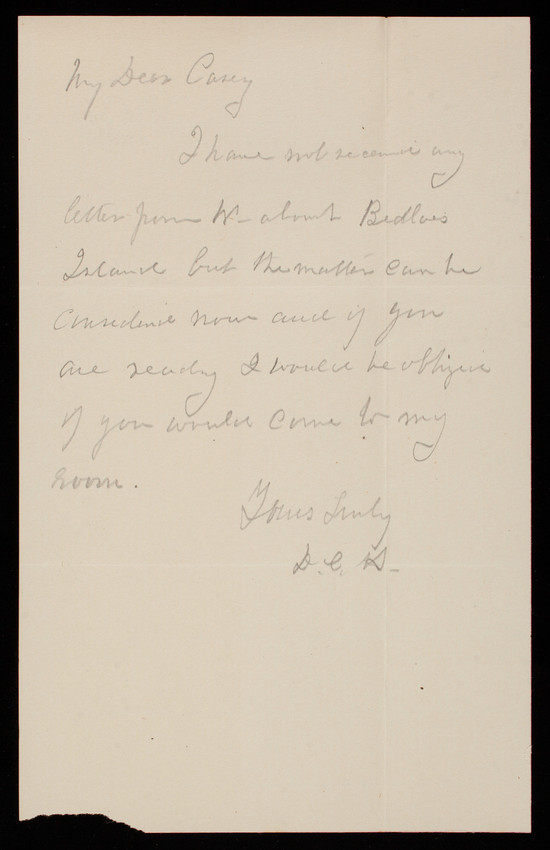 My Dear Casey
I have not received any
letter from W- about Bedloes
Island but the matter can be
considered now and if you
are ready I would be obliged
if you would come to my
room.
Yours truly
D. C. H-